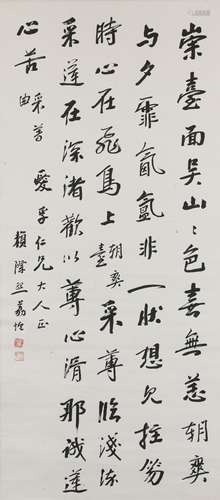 崇臺面吳山〻色喜無恙朝爽
與夕霏氤氳非一狀想見拄笏
時心在飛鳥上 朝爽臺 采蓴臨淺流
采蓮在深渚歡似蓴心滑那識蓮
心苦 采蓴曲 仁兄大人正
賴際熙